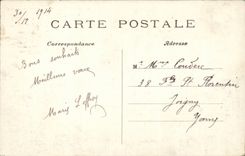 30/12 1914
CARTE POSTALE
Correspondance
Adresse
Vous souhaite
Meilleurs vœux
Marie
Mme
28 Fg St Florentin
Joigny
Yonne